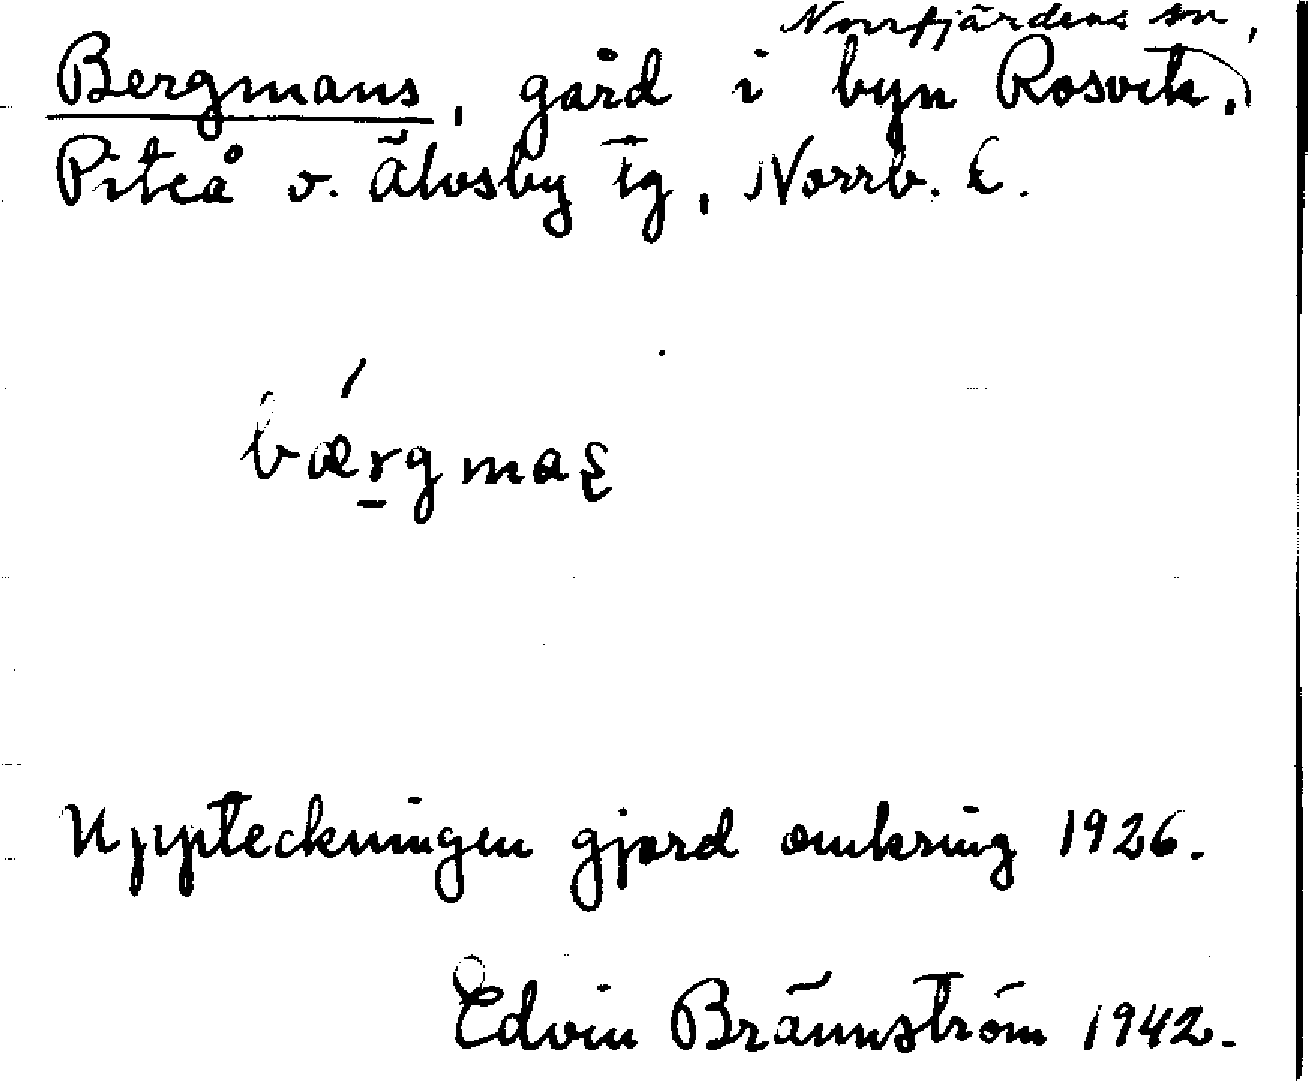 Norrfjärdens sn,
Bergmans, gård i byn Rosvik,
Piteå o. Älvsby tg, Norrb. L.
bærgmaş
Uppteckningen gjord omkring 1926.
Edvin Brännström 1942.